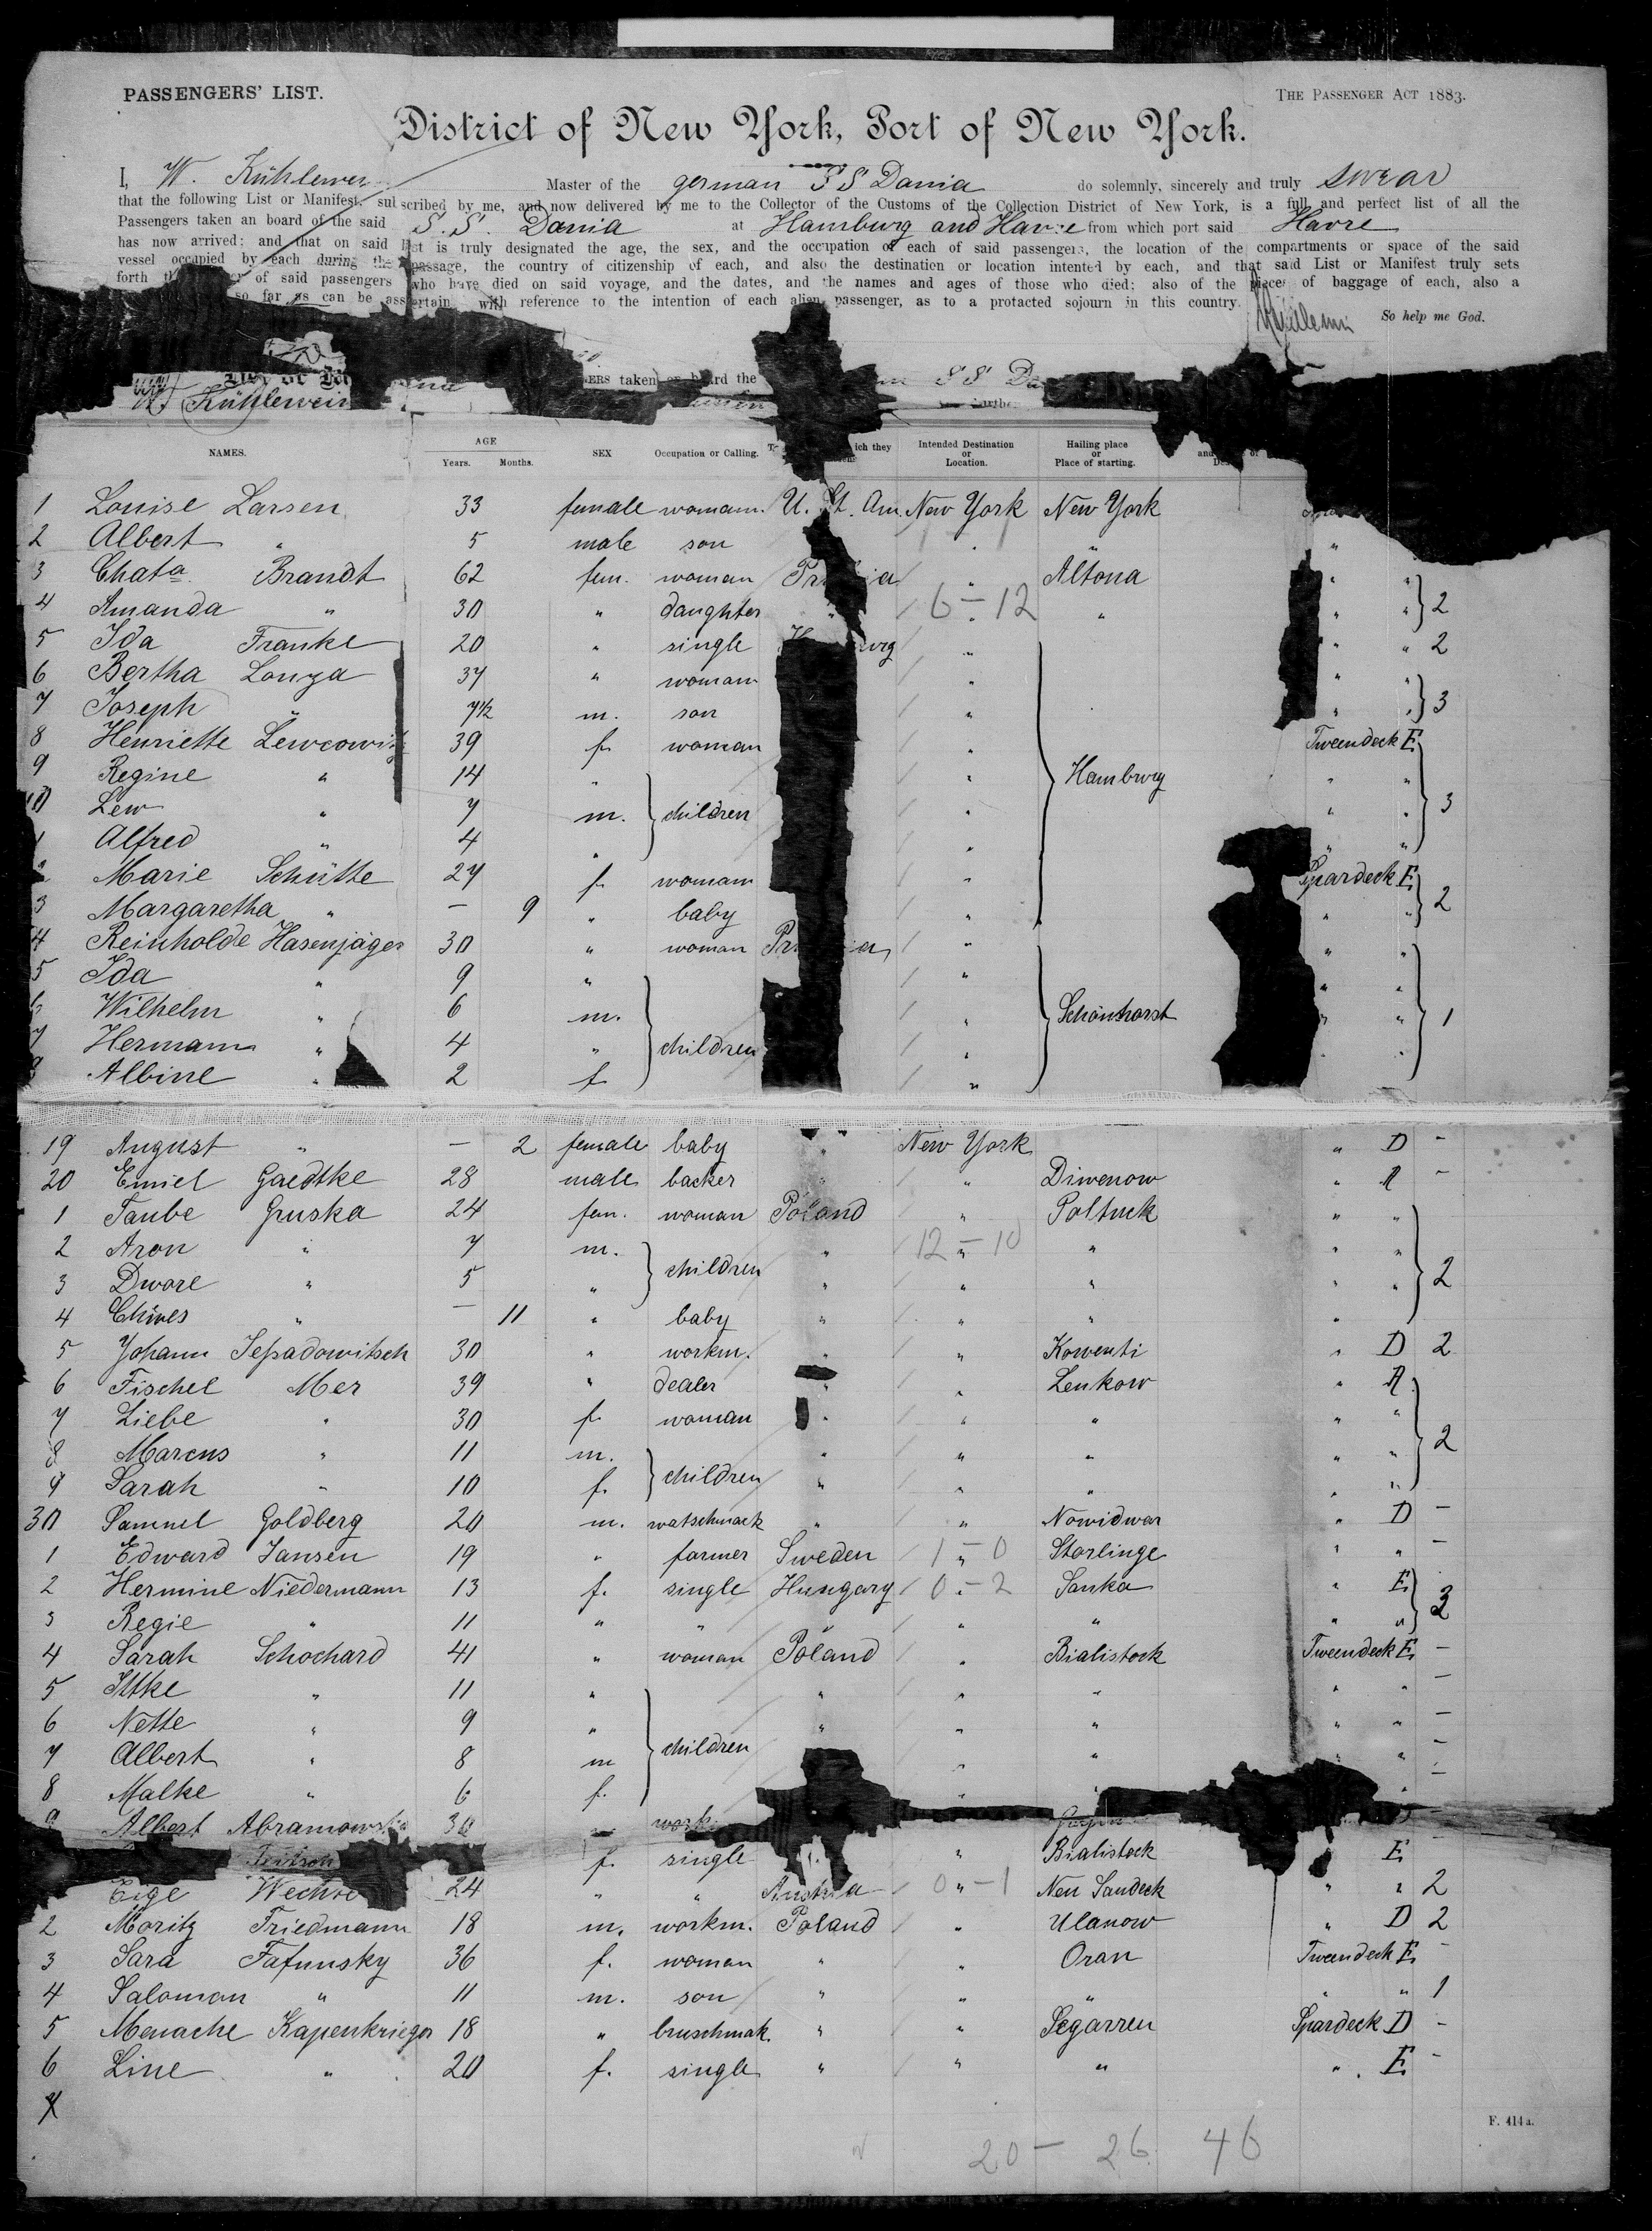 PASSENGERS' LIST. THE PASSENGER ACT 1883.
District of New York, Port of New York.
I, W. Kühlewe Master of the german SS Dania do solemnly, sincerely and truly swear
that the following List or Manifest, subscribed by me, and now delivered by me to the Collector of the Customs of the Collection District of New York, is a full and perfect list of all the
Passengers taken an board of the said S.S. Dania at Hamburg and Havre from which port said Havre
has now arrived; and that on said list is truly designated the age, the sex, and the occupation of each of said passengers, the location of the compartments or space of the said
vessel occupied by each during the passage, the country of citizenship of each, and also the destination or location intented by each, and that said List or Manifest truly sets
forth of said passengers who have died on said voyage, and the dates, and the names and ages of those who died; also of the pieces of baggage of each, also a
so far as can be ascertain with reference to the intention of each alien passenger, as to a protacted sojourn in this country.
So help me God.
taken on board the SS Da
Kühlewein
NAMES. AGE Years. Months. SEX Occupation or Calling. ich they Intended Destination or Location. Hailing place or Place of starting.
1 Louise Larsen 33 female womann. U. St. Am. New York New York
2 Albert " 5 male son " "
3 Chata Brandt 62 fem. woman Pr ia " Altona " "
4 Amanda " 30 " daughter " 6 - 12 " " " 2
5 Ida Franke 20 " single H urg " " " 2
6 Bertha Lonza 37 " woman " " "
7 Joseph " 7½ m. son " " " 3
8 Henriette Lewcowitz 39 f. woman " Tweendeck E
9 Regine " 14 " " Hamburg " "
10 Lew " 7 m. children " " " 3
1 Alfred " 4 " " " "
Marie Schütte 27 f. woman " Spardeck E
3 Margaretha " - 9 " baby " " " 2
4 Reinholde Hasenjäger 30 " woman Pr ia " " "
5 Ida " 9 " " " "
6 Wilhelm " 6 m. " Schönhorst " " 1
7 Hermann " 4 " children " " "
8 Albine " 2 f. "
19 August " - 2 female baby " New York " D -
20 Emiel Gaedtke 28 male backer " " Diwenow " A -
1 Taube Gruska 24 fem. woman Poland " Poltuck " "
2 Aron " 7 m. " 12 - 10 " " "
3 Dwore " 5 " children " " " " " 2
4 Chives " - 11 " baby " " " "
5 Yohann 30 " workm. " " Kowenti " D 2
6 Fischel Mer 39 " dealer " " Lenkow " A
7 Liebe " 30 f. woman " " " " "
8 Marcus " 11 m. " " " " " 2
9 Sarah " 10 f. children " " " " "
30 Samuel Goldberg 20 m. watschmack " " Nowidwar " D -
1 Edward Jansen 19 " farmer Sweden 1 - 0 Storlinge " " -
2 Hermine Niedermann 13 f. single Hungary 0 - 2 Sanka " E
3 Regie " 11 " " " " " " "
4 Sarah Schochard 41 " woman Poland " Bialistock Tweendeck E -
5 Ittke " 11 " " " " " " -
6 Nette " 9 " " " " " " -
7 Albert " 8 m children " " " -
8 Malke " 6 f. " " " -
9 Albert Abramows 30 work
f. single " Bialistock E
Eige 24 " " Austria 0 - 1 Neu Sandeck " " 2
2 Moritz Friedmann 18 m. workm. Poland " Ulanow " D 2
3 Sara Fafunsky 36 f. woman " " Oran Tweendeck E -
4 Saloman " 11 m. son " " " " " 1
5 Menache Kapenkrieger 18 " bruschmak. " " Segarren Spardeck D -
6 Line " 20 f. single " " " " E -
F. 414a.
20 - 26 46